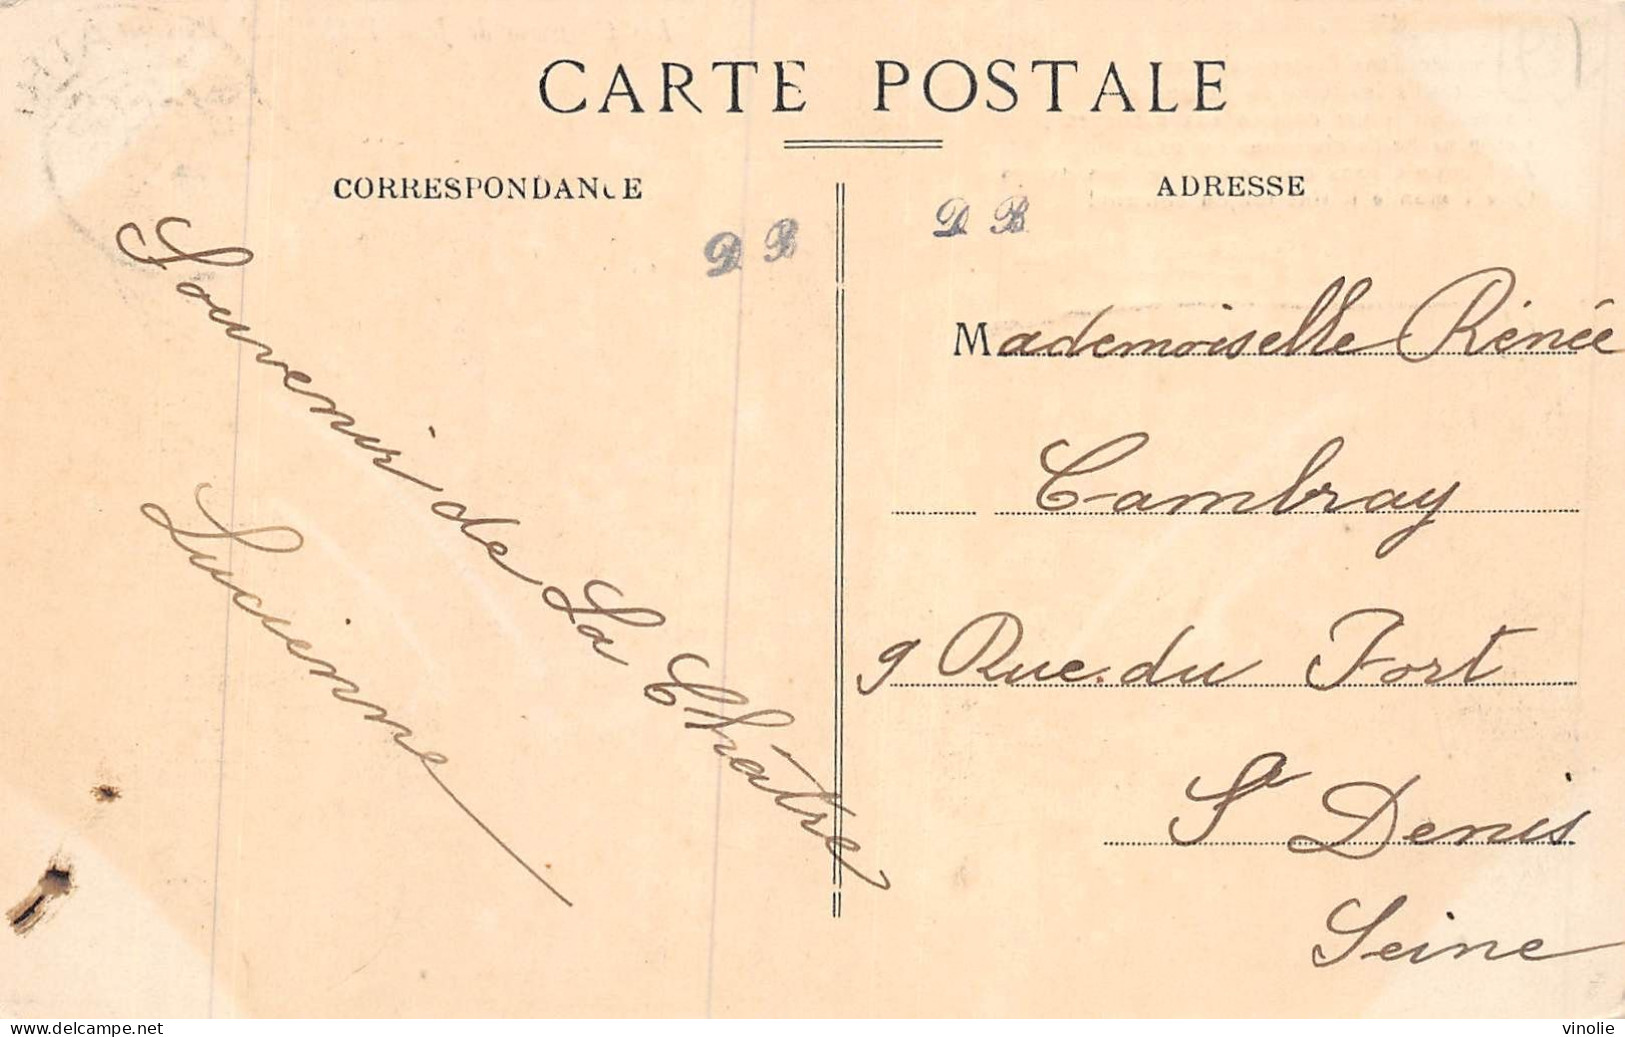 CARTE POSTALE
CORRESPONDANCE
ADRESSE
D B
D B
Souvenir de La Châtre
Lucienne
Mademoiselle Rénée
Cambray
9 Rue du Fort
St Denis
Seine
delcampe.net
vinolie